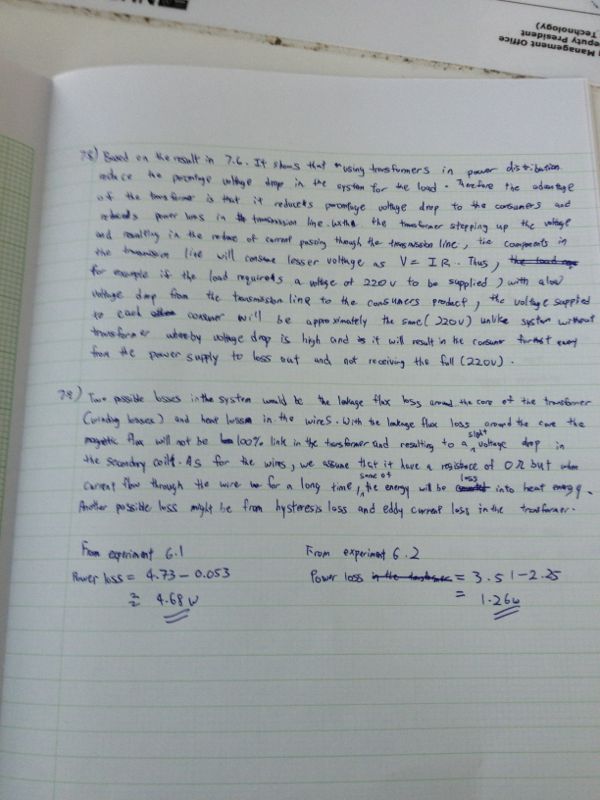 Management Office
eputy President
Technology)
7.8) Based on the result in 7.6. It shows that using transformers in power distribution
reduce the percentage voltage drop in the system for the load. Therefore the advantage
of the transformer is that it reduces percentage voltage drop to the consumers and
reduces power loss in the transmission line. With the transformer stepping up the voltage
and resulting in the reduce of current passing though the transmission line, the components in
the transmission line will consume lesser voltage as V = IR. Thus,
for example if the load requireds a voltage of 220V to be supplied, with a low
voltage drop from the transmission line to the consumers product, the voltage supplied
to each consumer will be approximately the same (220V) unlike system without
transformer whereby voltage drop is high and it will result in the consumer away
from the power supply to loss out and not receiving the full (220V).
7.8) Two possible losses in the system would be the leakage flux loss around the core of the transformer
(winding losses) and heat losses in the wires. With the leakage flux loss around the core the
magnetic flux will not be 100% link in the transformer and resulting to a slight voltage drop in
the secondary coil. As for the wires, we assume that it have a resistance of 0Ω but when
current flow through the wire for a long time, some of the energy will be loss into heat energy.
Another possible loss might be from hysteresis loss and eddy current loss in the transformer.
From experiment 6.1 From experiment 6.2
Power loss = 4.73 - 0.053 Power loss = 3.51 - 2.25
≈ 4.68 W = 1.26W